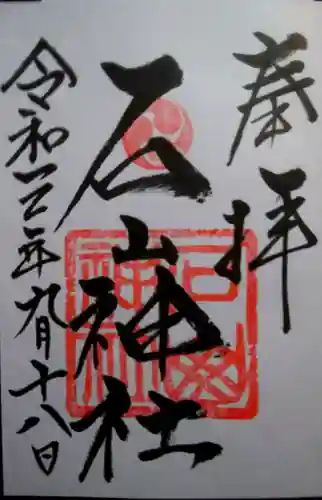 奉拝
石山神社
令和三年九月十八日